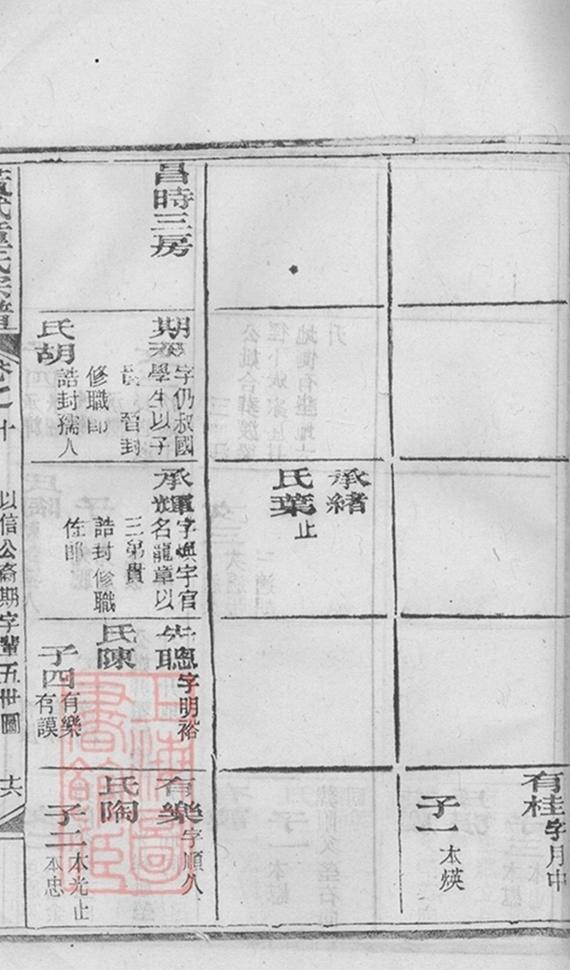 有桂
字月中
子一
本煐
承緒
氏葉
止
昌時三房
期
字仍叔國
學生以子
晉封
修職郎
氏胡
誥封孺人
承輝
字官
名龍章以
三弟貴
誥封修職
佐郎
先聰
字明裕
氏陳
子四
有樂
有謨
有樂
字順久
氏陶
子二
本光止
本忠
章氏宗譜
卷之十
以信公裔期字輩五世圖
十六
上海圖書館藏